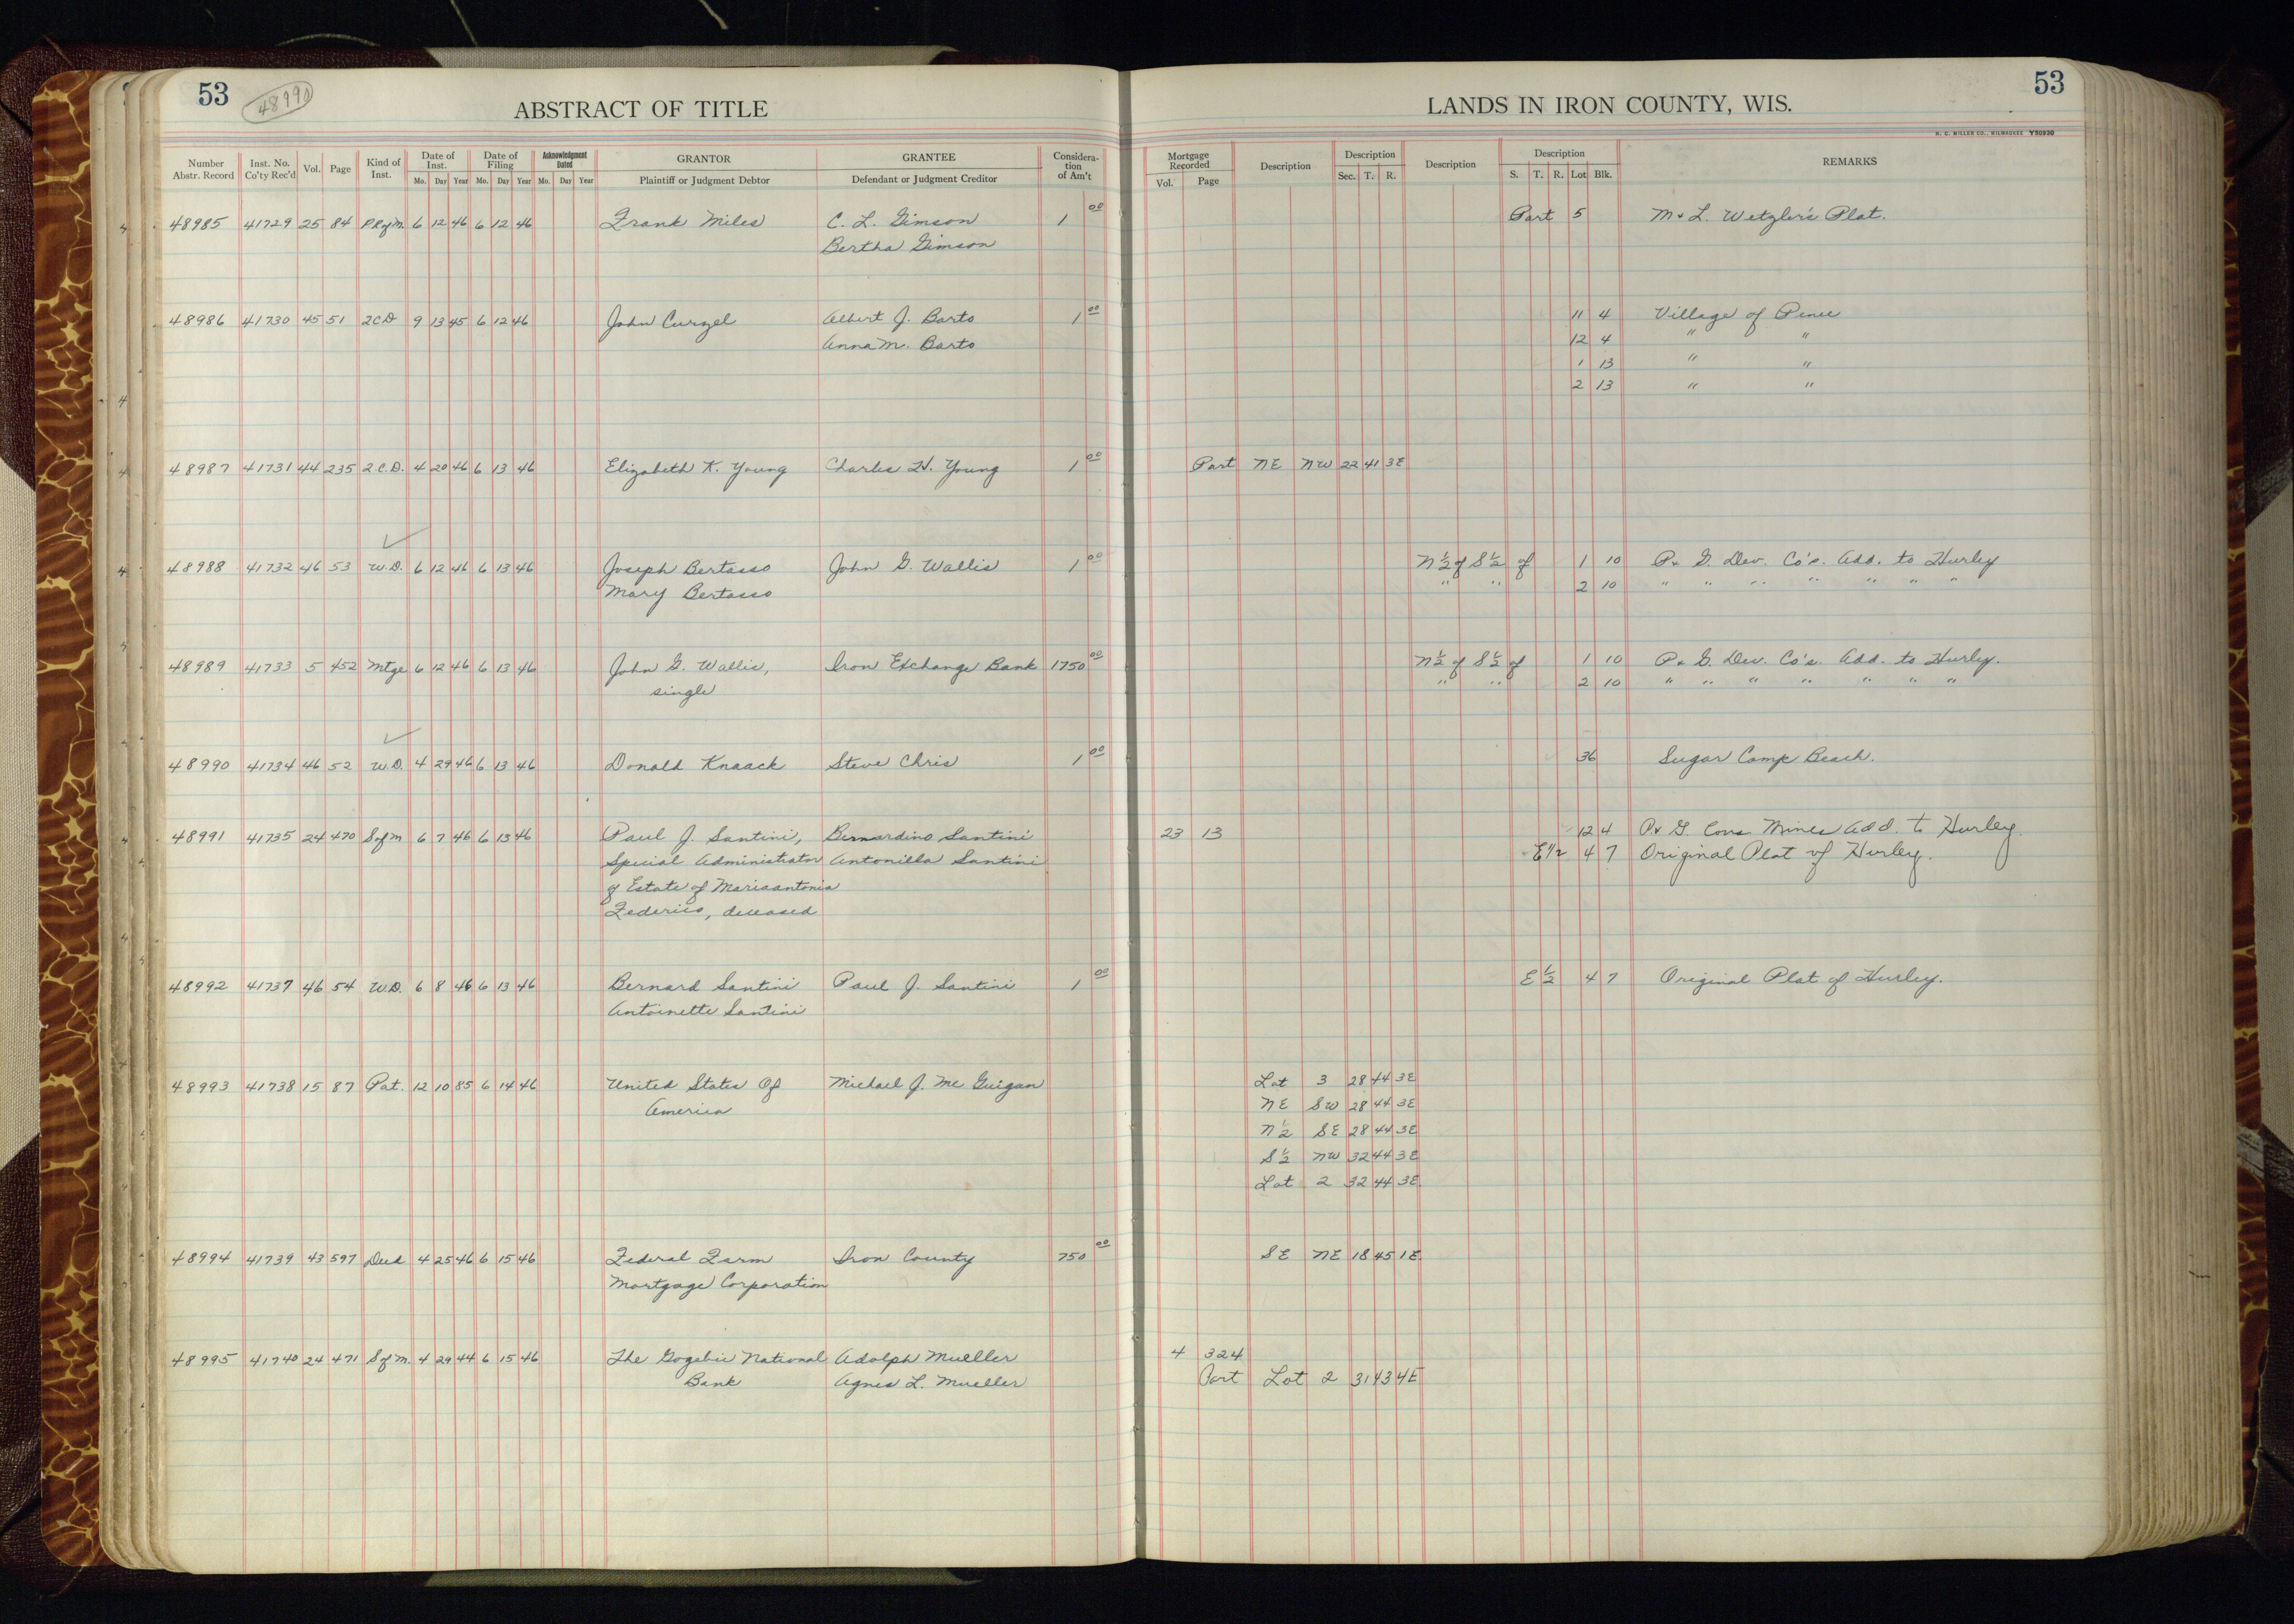 53
48990
ABSTRACT OF TITLE
LANDS IN IRON COUNTY, WIS.
53
H. C. MILLER CO., MILWAUKEE Y50930
Number Abstr. Record Inst. No. Co'ty Rec'd Vol. Page Kind of Inst. Date of Inst. Mo. Day Year Date of Filing Mo. Day Year Acknowledgment Dated Mo. Day Year GRANTOR Plaintiff or Judgment Debtor GRANTEE Defendant or Judgment Creditor Consideration of Am't Mortgage Recorded Vol. Page Description Description Sec. T. R. Description Description S. T. R. Lot Blk. REMARKS
48985 41729 25 84 P.R.of M. 6 12 46 6 12 46 Frank Miles C. L. Gimson 1 00 Part 5 M & L. Wetzler's Plat.
Bertha Gimson
48986 41730 45 51 2CD 9 13 45 6 12 46 John Curzel Albert J. Barto 1 00 11 4 Village of Pence
Anna M. Barto 12 4 " "
1 13 " "
2 13 " "
48987 41731 44 235 2 C.D. 4 20 46 6 13 46 Elizabeth K. Young Charles H. Young 1 00 Part NE NW 22 41 3E
48988 41732 46 53 W.D. 6 12 46 6 13 46 Joseph Bertasso John G. Wallis 1 00 N ½ of S ½ of 1 10 P. & G. Dev. Co's. Add. to Hurley
Mary Bertasso " " 2 10 " " " " " " "
48989 41733 5 452 Mtge 6 12 46 6 13 46 John G. Wallis, Iron Exchange Bank 1750 00 N ½ of S ½ of 1 10 P. & G. Dev. Co's. Add. to Hurley.
single " " 2 10 " " " " " " "
48990 41734 46 52 W.D. 4 29 46 6 13 46 Donald Knaack Steve Chris 1 00 36 Sugar Camp Beach.
48991 41735 24 470 S of M 6 7 46 6 13 46 Paul J. Santini, Bernardino Santini 23 13 12 4 P. & G. Cons Mines Add. to Hurley.
Special Administrator Antonilla Santini E 1/2 4 7 Original Plat of Hurley.
of Estate of Mariaantonia
Federico, deceased
48992 41737 46 54 W.D. 6 8 46 6 13 46 Bernard Santini Paul J. Santini 1 00 E ½ 4 7 Original Plat of Hurley.
Antoinette Santini
48993 41738 15 87 Pat. 12 10 85 6 14 46 United States Of Michael J. Mc Guigan Lot 3 28 44 3E
America NE SW 28 44 3E
N ½ SE 28 44 3E
S ½ NW 32 44 3E
Lot 2 32 44 3E.
48994 41739 43 597 Deed 4 25 46 6 15 46 Federal Farm Iron County 750 00 SE NE 18 45 1E.
Mortgage Corporation
48995 41740 24 471 S of M. 4 29 44 6 15 46 The Gogebic National Adolph Mueller 4 324
Bank Agnes L. Mueller Part Lot 2 31 43 4E